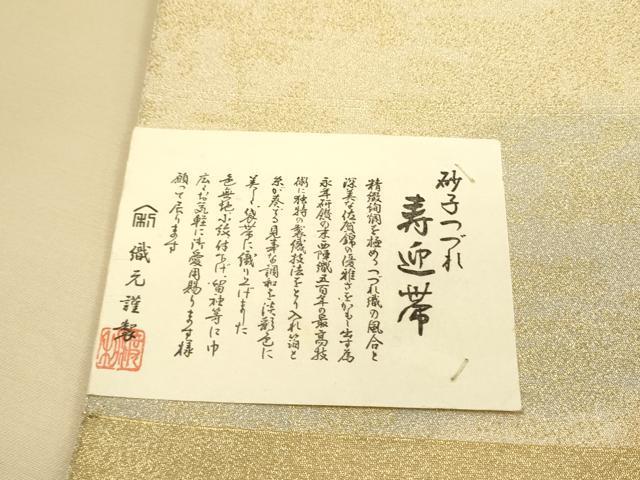 砂子つづれ
寿迎帯
精緻絢調を極めつづれ織の風合と
深美な佐賀錦の優雅さをかもし出す為
永年研鑽の末西陣織五百年の最高技
術に独特の製織技法をとり入れ箔と
糸が奏でる見事な調和を淡彩色に
美しく袋帯に織り上げました
色無地小紋付下げ留袖等に巾
広くお気軽に御愛用賜ります様
願って居ります
織元謹製